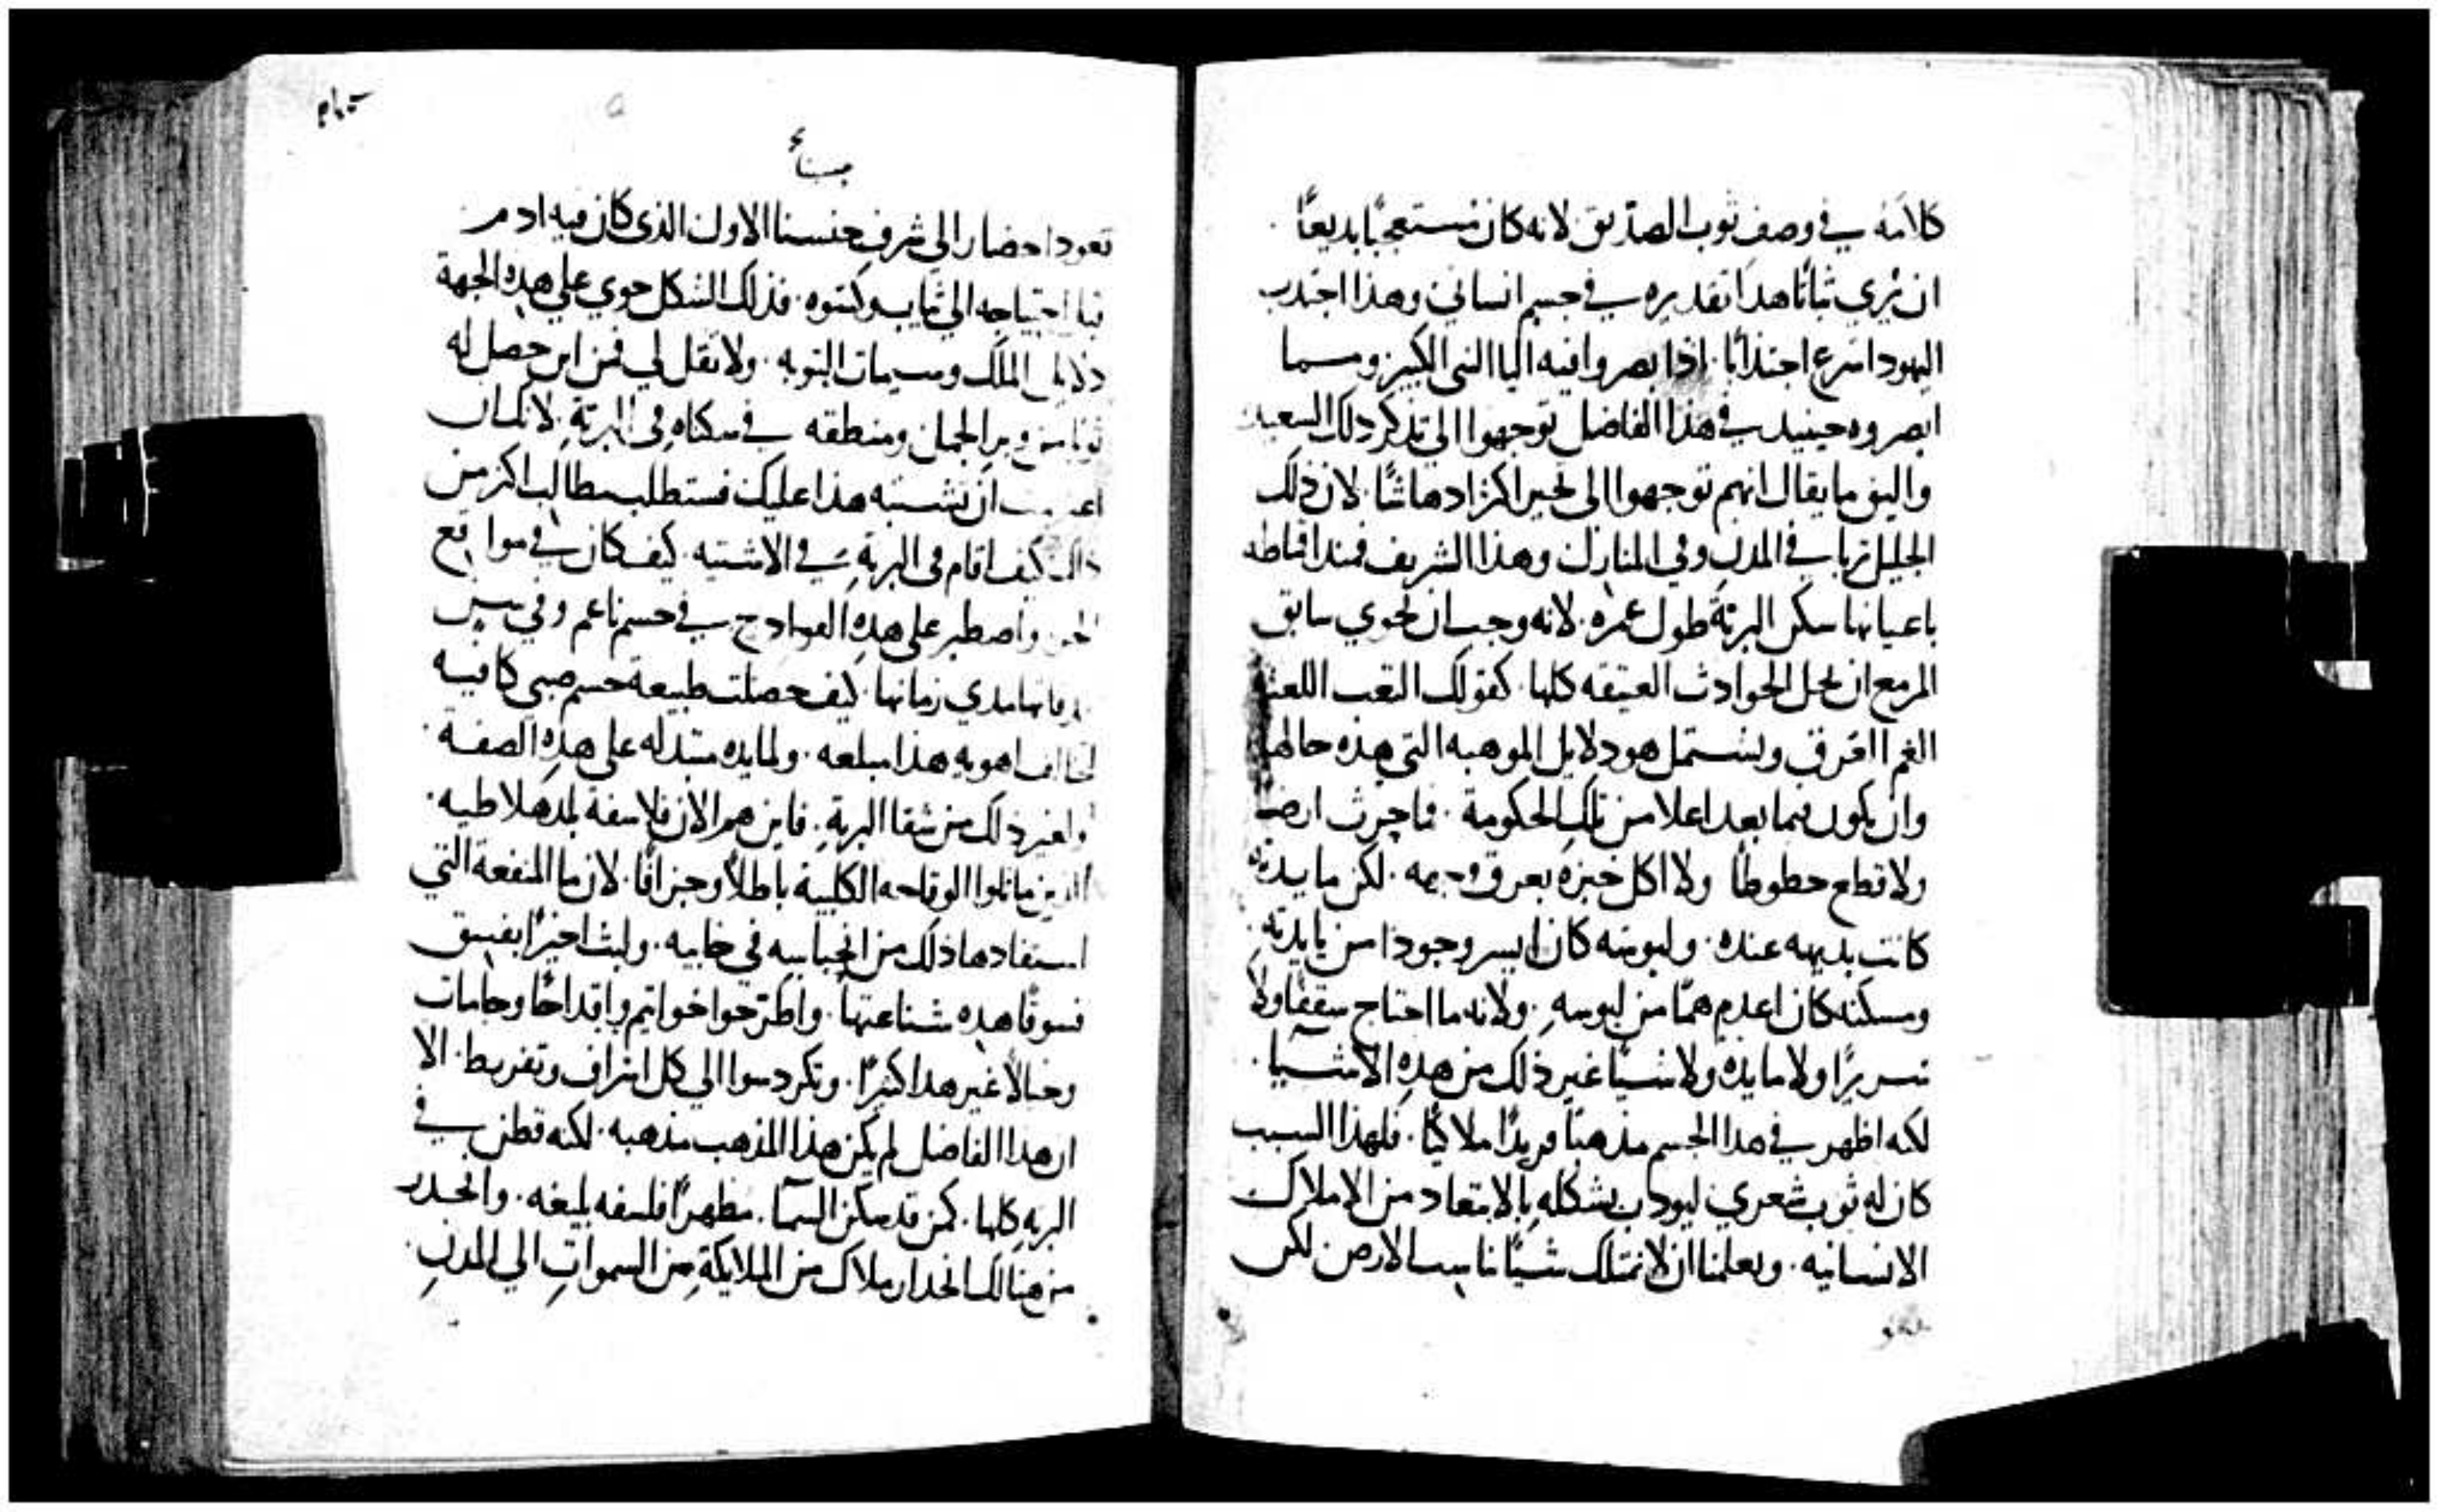 كلامه في وصف ثوب الصديق لانه كان مستعجبًا بديعًا
ان يُري ثباتًا هذا تقديره في جسم انساني وهذا اجتدب
اليهود اسرع اجتذابًا. اذا بصروا فيه اليا النبي الكبير ومسما
ابصروه حينيد في هذا الفاضل توجهوا الي تذكر ذلك السعيد
واليق ما يقال انهم توجهوا الى تحير اكثر ادهاشًا. لان ذلك
الجليل تربا في المدن وفي المنازل وهذا الشريف فمند اقماطه
باعيانها سكن البرية طول عمره. لانه وجب ان يحوي سابق
المزمع ان يحل الحوادث العتيقه كلها. كقولك التعب اللعنه
الغم العرق ويشتمل هو دلايل الموهبه التي هذه حالها
وان يكون فيما بعد اعلا من تلك الحكومة. فما حرث ارضًا
ولا قطع خطوطًا ولا اكل خبزه بعرق وجهه. لكن مايدته
كانت بديهه عنده. ولبوسه كان ايسر وجودا من مايدته
ومسكنه كان اعدم همًا من لبوسه. ولانه ما احتاج سقفًا ولا
سريرًا ولا مايده ولا شيًا غير ذلك من هذه الاشيا.
لكنه اظهر في هذا الجسم مذهبًا فريدًا ملاكيًا. فلهذا السبب
كان له ثوب شعري ليودب بشكله بالابتعاد من الاملاك
الانسانيه. ويعلمنا ان لا نمتلك شيًا ناسب الارض لكن
تعود احضارا الي شرف جنسنا الاول الذي كان فيه ادم
احتياجه الي ثياب وكسوه. فذلك الشكل حوي على هذه الجهة
دلايل الملك وسيمات التوبه. ولا تقل لي فمن اين حصل له
ثوبا من وبر الجمال ومنطقه في سكناه في البرية. لانك ان
ان تشتبه هذا عليك فستطلب مطالب اكثر من
ذلك كيف اقام في البرية في الاشتيه. كيف كان في مواقع
الحر واصطبر على هذه الفوادح في جسم ناعم وفي سن
مدي زمانها. كيف حصلت طبيعة جسم صبي كافيه
اهويه هذا مبلغه. ولمايده مبتدله على هذه الصفه.
ولغير ذلك من شقا البرية. فاين هم الان فلاسفة بلد هلاطيه.
الذين ماثلوا الوقاحه الكلبية باطلًا وجزافًا. لان ما المنفعة التي
استفادها ذلك من انحباسه في خابيه. ولبث اخيرًا بفسق
فسوقًا هذه شناعتها. واطترحوا خواتيم واقداحًا وجامات
وخيالًا غير هذا كثيرًا. وتكردسوا الي كل اسراف وتفريط. الا
ان هذا الفاضل لم يكن هذا المذهب مذهبه. لكنه قطن في
البريه كلها. كمن قد سكن السما. مظهرًا فلسفه بليغه. وانحدر
من هنالك انحدار ملاك من الملايكة من السموات الي المدن.